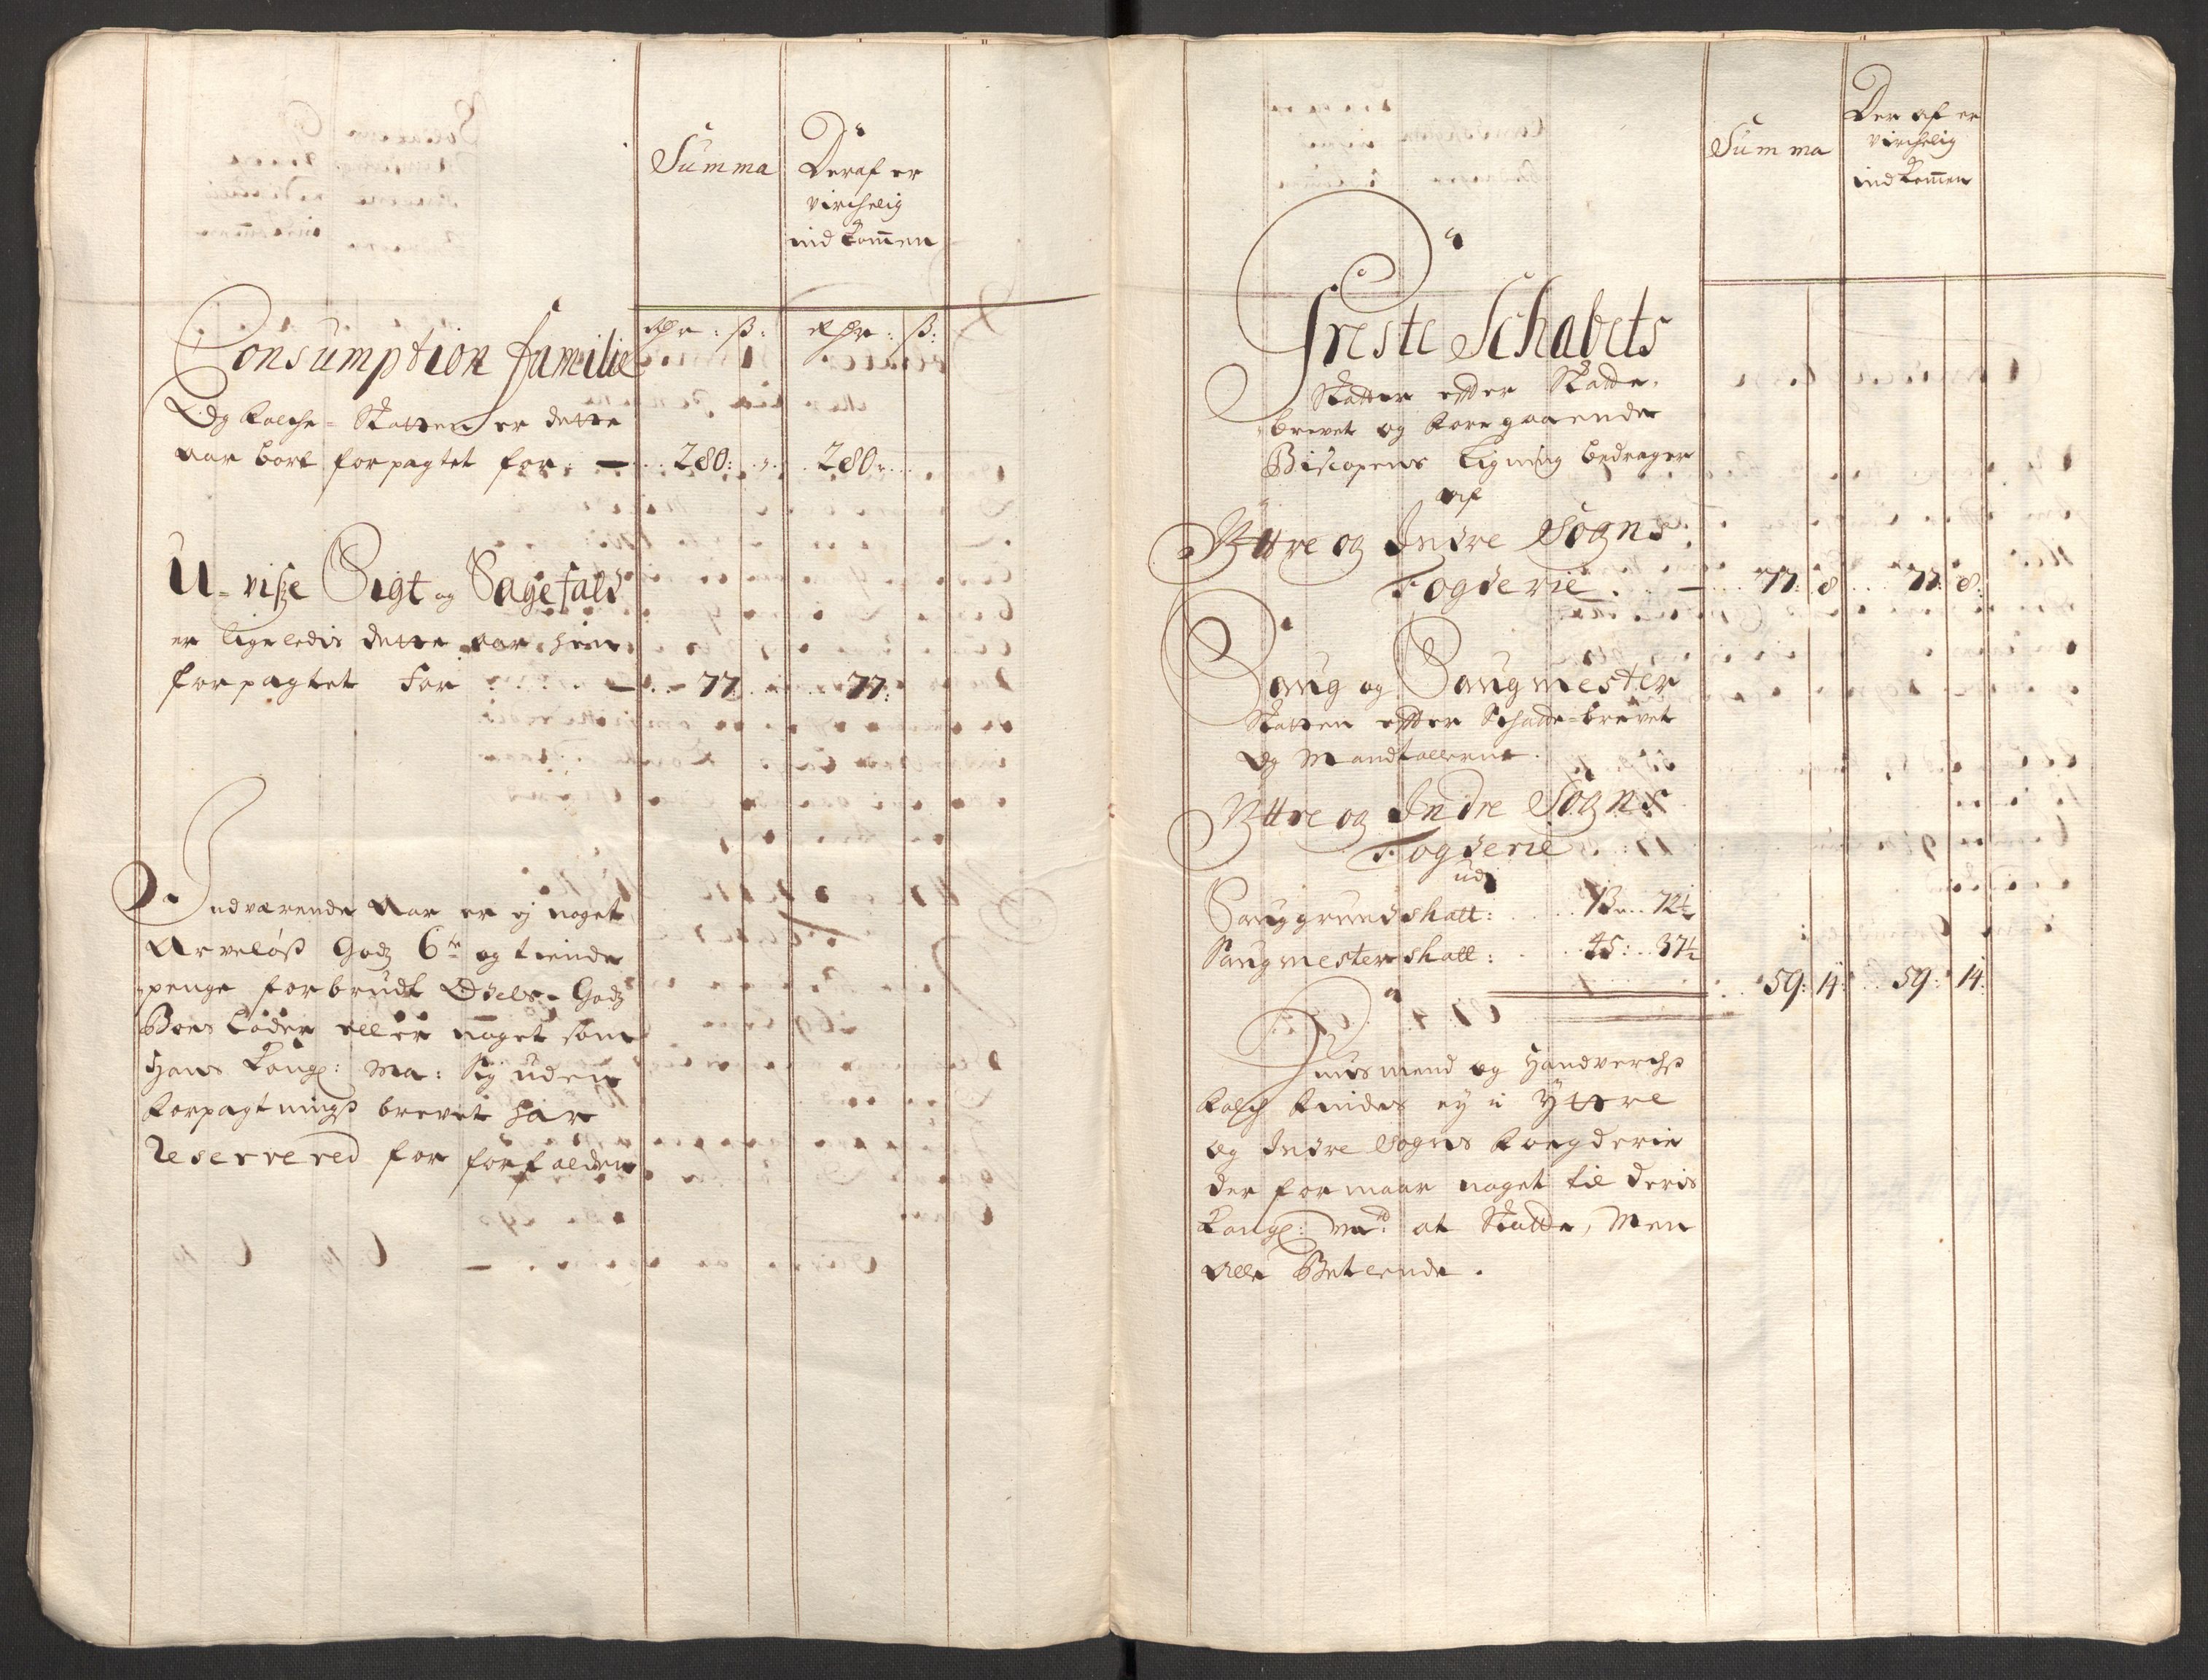 Summa
Deraf er
virchelig
ind kommen
Rdr : ß: Rdr : ß:
Consumption familie
Og Folche-Skatten er dette
aar bort forpagtet for. — 280: 280:
U-viße Sigt og Sagefald
er ligeledis dette aar hen
forpagtet for — 77 77:
Indværende Aar er ej noget
Arveløß Godz 6te og tiende
penge forbrudt Odels-Godz
Boes Løder eller noget som
Hans Kongl: Ma: Sig uden
forpagtnings brevet har
Reserrered for forfalden
Summa
Der af er
virchelig
ind kommen
Preste Schabets
Skatter efter Skatte-
brevet og foregaaende
Biscopens Ligning bedrager
af
Yttre og Indre Sogns
Fogderie . — 77: 8 77: 8:
Saug og Saugmester
Skatten efter Schatte-brevet
Og Mandtallerne.
Yttre og Indre Sogns
Fogderie
udj
Sauggrundskatt: 13: 72½
Saugmesterskatt: 45: 37½
59: 14: 59: 14:
Huusmend og Handverchs
Folch findes ey i Yttre
og Indre Sogns Fougderie
der formaar noget til deris
Kongl: Ma: at Skatte, Men
alle Betlende.